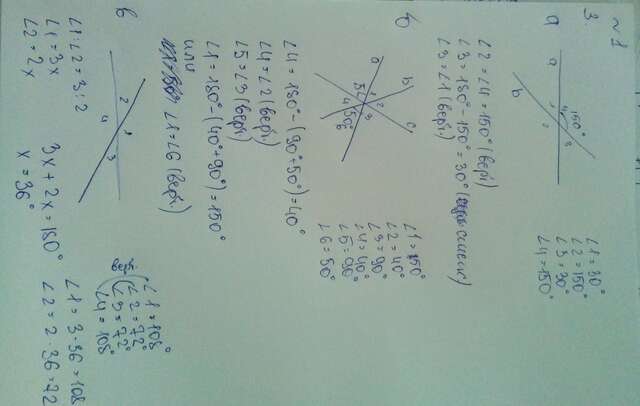 №1
3.
а
a
b
150°
4
3
1
∠1 = 30°
∠2 = 150°
∠3 = 30°
∠4 = 150°
∠2 = ∠4 = 150° (верт.)
∠3 = 180° - 150° = 30° (смеж)
∠3 = ∠1 (верт.)
б
a
b
c
1
2
3
4
5
50°
6
∠1 = 150°
∠2 = 40°
∠3 = 90°
∠4 = 40°
∠5 = 90°
∠6 = 50°
∠4 = 180° - (90° + 50°) = 40°
∠4 = ∠2 (верт.)
∠5 = ∠3 (верт.)
∠1 = 180° - (40° + 90°) = 150°
или
∠1 = ∠6 (верт.)
в
2
1
4
3
∠1 : ∠2 = 3 : 2
∠1 = 3x
∠2 = 2x
3x + 2x = 180°
x = 36°
∠1 = 3 · 36 = 108
∠2 = 2 · 36 = 72
верт.
∠1 = 108°
∠2 = 72°
∠3 = 72°
∠4 = 108°